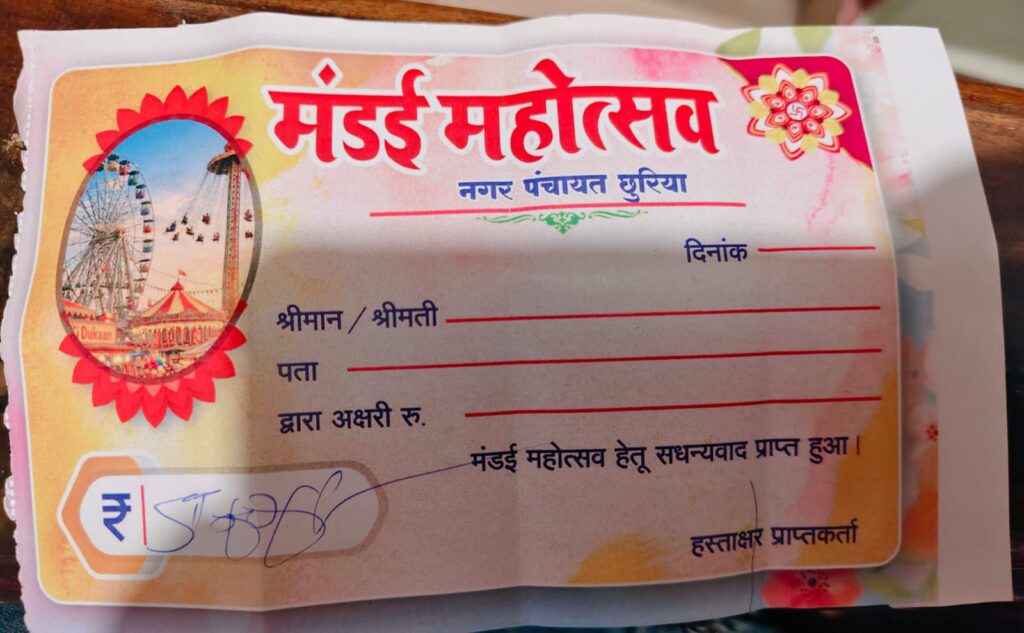 मंडई महोत्सव
नगर पंचायत छुरिया
दिनांक
श्रीमान / श्रीमती
पता
द्वारा अक्षरी रु.
मंडई महोत्सव हेतू सधन्यवाद प्राप्त हुआ।
₹
हस्ताक्षर प्राप्तकर्ता
Ki Dukaan